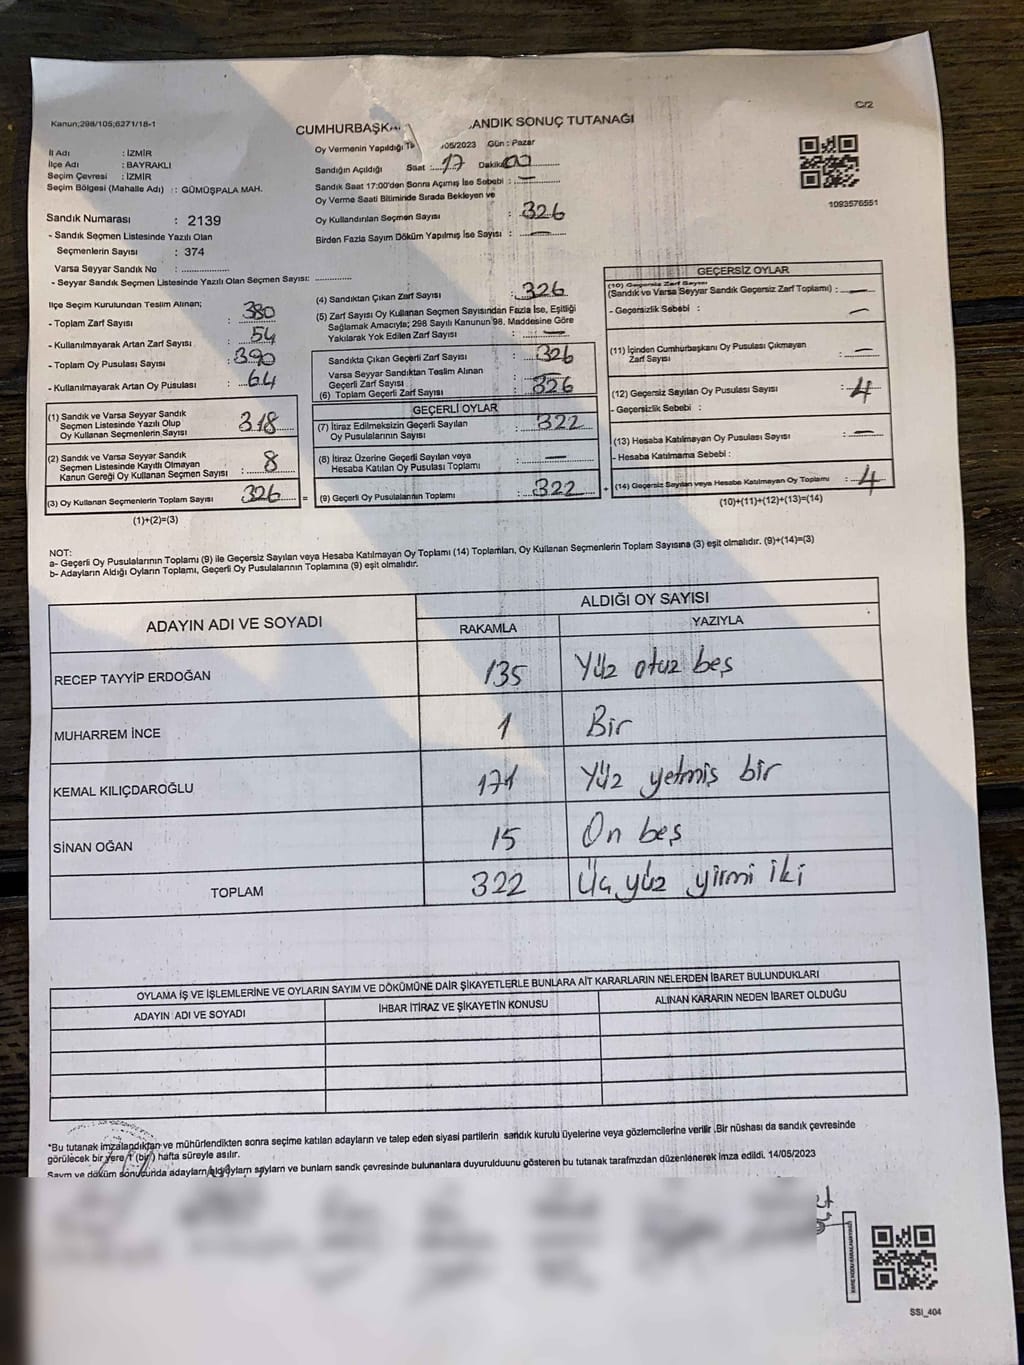 Kanun;298/105;6271/18-1
C/2
CUMHURBAŞKA ANDIK SONUÇ TUTANAĞI
İl Adı : İZMİR
İlçe Adı : BAYRAKLI
Seçim Çevresi : İZMİR
Seçim Bölgesi (Mahalle Adı) : GÜMÜŞPALA MAH.
Sandık Numarası : 2139
- Sandık Seçmen Listesinde Yazılı Olan
Seçmenlerin Sayısı : 374
Varsa Seyyar Sandık No :
- Seyyar Sandık Seçmen Listesinde Yazılı Olan Seçmen Sayısı:
Oy Vermenin Yapıldığı /05/2023 Gün : Pazar
Sandığın Açıldığı Saat : 17 Dakika 00
Sandık Saat 17:00'den Sonra Açımış İse Sebebi : —
Oy Verme Saati Bitiminde Sırada Bekleyen ve
Oy Kullandırılan Seçmen Sayısı : 326
Birden Fazla Sayım Döküm Yapılmış İse Sayısı : —
1093576551
İlçe Seçim Kurulundan Teslim Alınan;
- Toplam Zarf Sayısı : 380
- Kullanılmayarak Artan Zarf Sayısı : 54
- Toplam Oy Pusulası Sayısı : 390
- Kullanılmayarak Artan Oy Pusulası : 64
(1) Sandık ve Varsa Seyyar Sandık
Seçmen Listesinde Yazılı Olup
Oy Kullanan Seçmenlerin Sayısı 318
(2) Sandık ve Varsa Seyyar Sandık
Seçmen Listesinde Kayıtlı Olmayan
Kanun Gereği Oy Kullanan Seçmen Sayısı : 8
(3) Oy Kullanan Seçmenlerin Toplam Sayısı 326 =
(1)+(2)=(3)
(4) Sandıktan Çıkan Zarf Sayısı : 326
(5) Zarf Sayısı Oy Kullanan Seçmen Sayısından Fazla İse, Eşitliği
Sağlamak Amacıyla; 298 Sayılı Kanunun 98. Maddesine Göre
Yakılarak Yok Edilen Zarf Sayısı : —
Sandıkta Çıkan Geçerli Zarf Sayısı : 326
Varsa Seyyar Sandıktan Teslim Alınan
Geçerli Zarf Sayısı :
(6) Toplam Geçerli Zarf Sayısı : 326
GEÇERLİ OYLAR
(7) İtiraz Edilmeksizin Geçerli Sayılan
Oy Pusulalarının Sayısı : 322
(8) İtiraz Üzerine Geçerli Sayılan veya
Hesaba Katılan Oy Pusulası Toplamı : —
(9) Geçerli Oy Pusulalarının Toplamı : 322 +
GEÇERSİZ OYLAR
(10) Geçersiz Zarf Sayısı
(Sandık ve Varsa Seyyar Sandık Geçersiz Zarf Toplamı) : —
- Geçersizlik Sebebi : —
(11) İçinden Cumhurbaşkanı Oy Pusulası Çıkmayan
Zarf Sayısı : —
(12) Geçersiz Sayılan Oy Pusulası Sayısı : 4
- Geçersizlik Sebebi :
(13) Hesaba Katılmayan Oy Pusulası Sayısı : —
- Hesaba Katılmama Sebebi :
(14) Geçersiz Sayılan veya Hesaba Katılmayan Oy Toplamı : 4
(10)+(11)+(12)+(13)=(14)
NOT:
a- Geçerli Oy Pusulalarının Toplamı (9) ile Geçersiz Sayılan veya Hesaba Katılmayan Oy Toplamı (14) Toplamları, Oy Kullanan Seçmenlerin Toplam Sayısına (3) eşit olmalıdır. (9)+(14)=(3)
b- Adayların Aldığı Oyların Toplamı, Geçerli Oy Pusulalarının Toplamına (9) eşit olmalıdır.
ADAYIN ADI VE SOYADI
ALDIĞI OY SAYISI
RAKAMLA YAZIYLA
RECEP TAYYİP ERDOĞAN 135 Yüz otuz beş
MUHARREM İNCE 1 Bir
KEMAL KILIÇDAROĞLU 171 Yüz yetmiş bir
SİNAN OĞAN 15 On beş
TOPLAM 322 Üç yüz yirmi iki
OYLAMA İŞ VE İŞLEMLERİNE VE OYLARIN SAYIM VE DÖKÜMÜNE DAİR ŞİKAYETLERLE BUNLARA AİT KARARLARIN NELERDEN İBARET BULUNDUKLARI
ADAYIN ADI VE SOYADI İHBAR İTİRAZ VE ŞİKAYETİN KONUSU ALINAN KARARIN NEDEN İBARET OLDUĞU
*Bu tutanak imzalandıktan ve mühürlendikten sonra seçime katılan adayların ve talep eden siyasi partilerin sandık kurulu üyelerine veya gözlemcilerine verilir .Bir nüshası da sandık çevresinde
görülecek bir yere 1 (bir) hafta süreyle asılır.
Sayım ve döküm sonucunda adayların aldığı oyların sayıları ve bunların sandık çevresinde bulunanlara duyurulduunu gösteren bu tutanak tarafmzdan düzenlenerek imza edildi. 14/05/2023
SSI_404